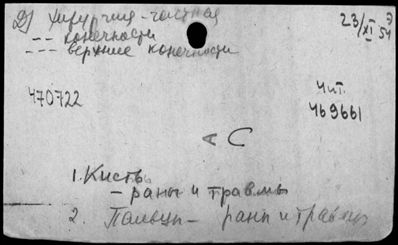 Д) Хирургия - частная
23/XI 54
--- конечности
--- верхние конечности
470722
Чит.
469661
А С
1. Кисть
- раны и травмы
2. Пальцы - раны и травмы